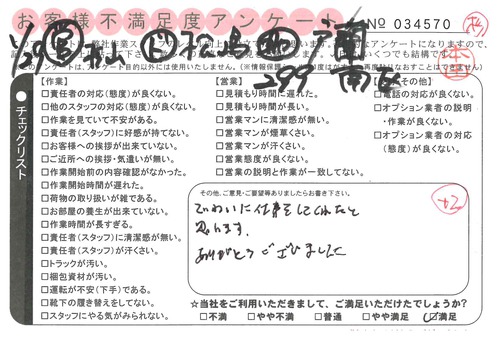 お客様不満足度アンケート
No 034570
チェックリスト
【作業】
□責任者の対応(態度)が良くない。
□他のスタッフの対応(態度)が良くない。
□作業を見ていて不安がある。
□責任者(スタッフ)に好感が持てない。
□お客様への挨拶が出来ていない。
□ご近所への挨拶・気遣いが無い。
□作業開始前の内容確認がなかった。
□作業開始時間が遅れた。
□荷物の取り扱いが雑である。
□お部屋の養生が出来ていない。
□作業時間が長すぎる。
□責任者(スタッフ)に清潔感が無い。
□責任者(スタッフ)が汗くさい。
□トラックが汚い。
□梱包資材が汚い。
□運転が不安(下手)である。
□靴下の履き替えをしてない。
□スタッフにやる気がみられない。
【営業】
□見積もり時間に遅れた。
□見積もり時間が長い。
□営業マンに清潔感が無い。
□営業マンが煙草くさい。
□営業マンが汗くさい。
□営業態度が良くない。
□営業の説明と作業が一致してない。
その他】
□電話の対応が良くない。
□オプション業者の説明
・作業が良くない。
□オプション業者の対応
(態度)が良くない。
その他、ご意見・ご要望等ありましたらお書き下さい。
ていねいに仕事をしてくれたと
思います。
ありがとうございました
☆当社をご利用いただきまして、ご満足いただけてしょうか?
□不満 □やや不満 □普通 □やや満足 ☑満足